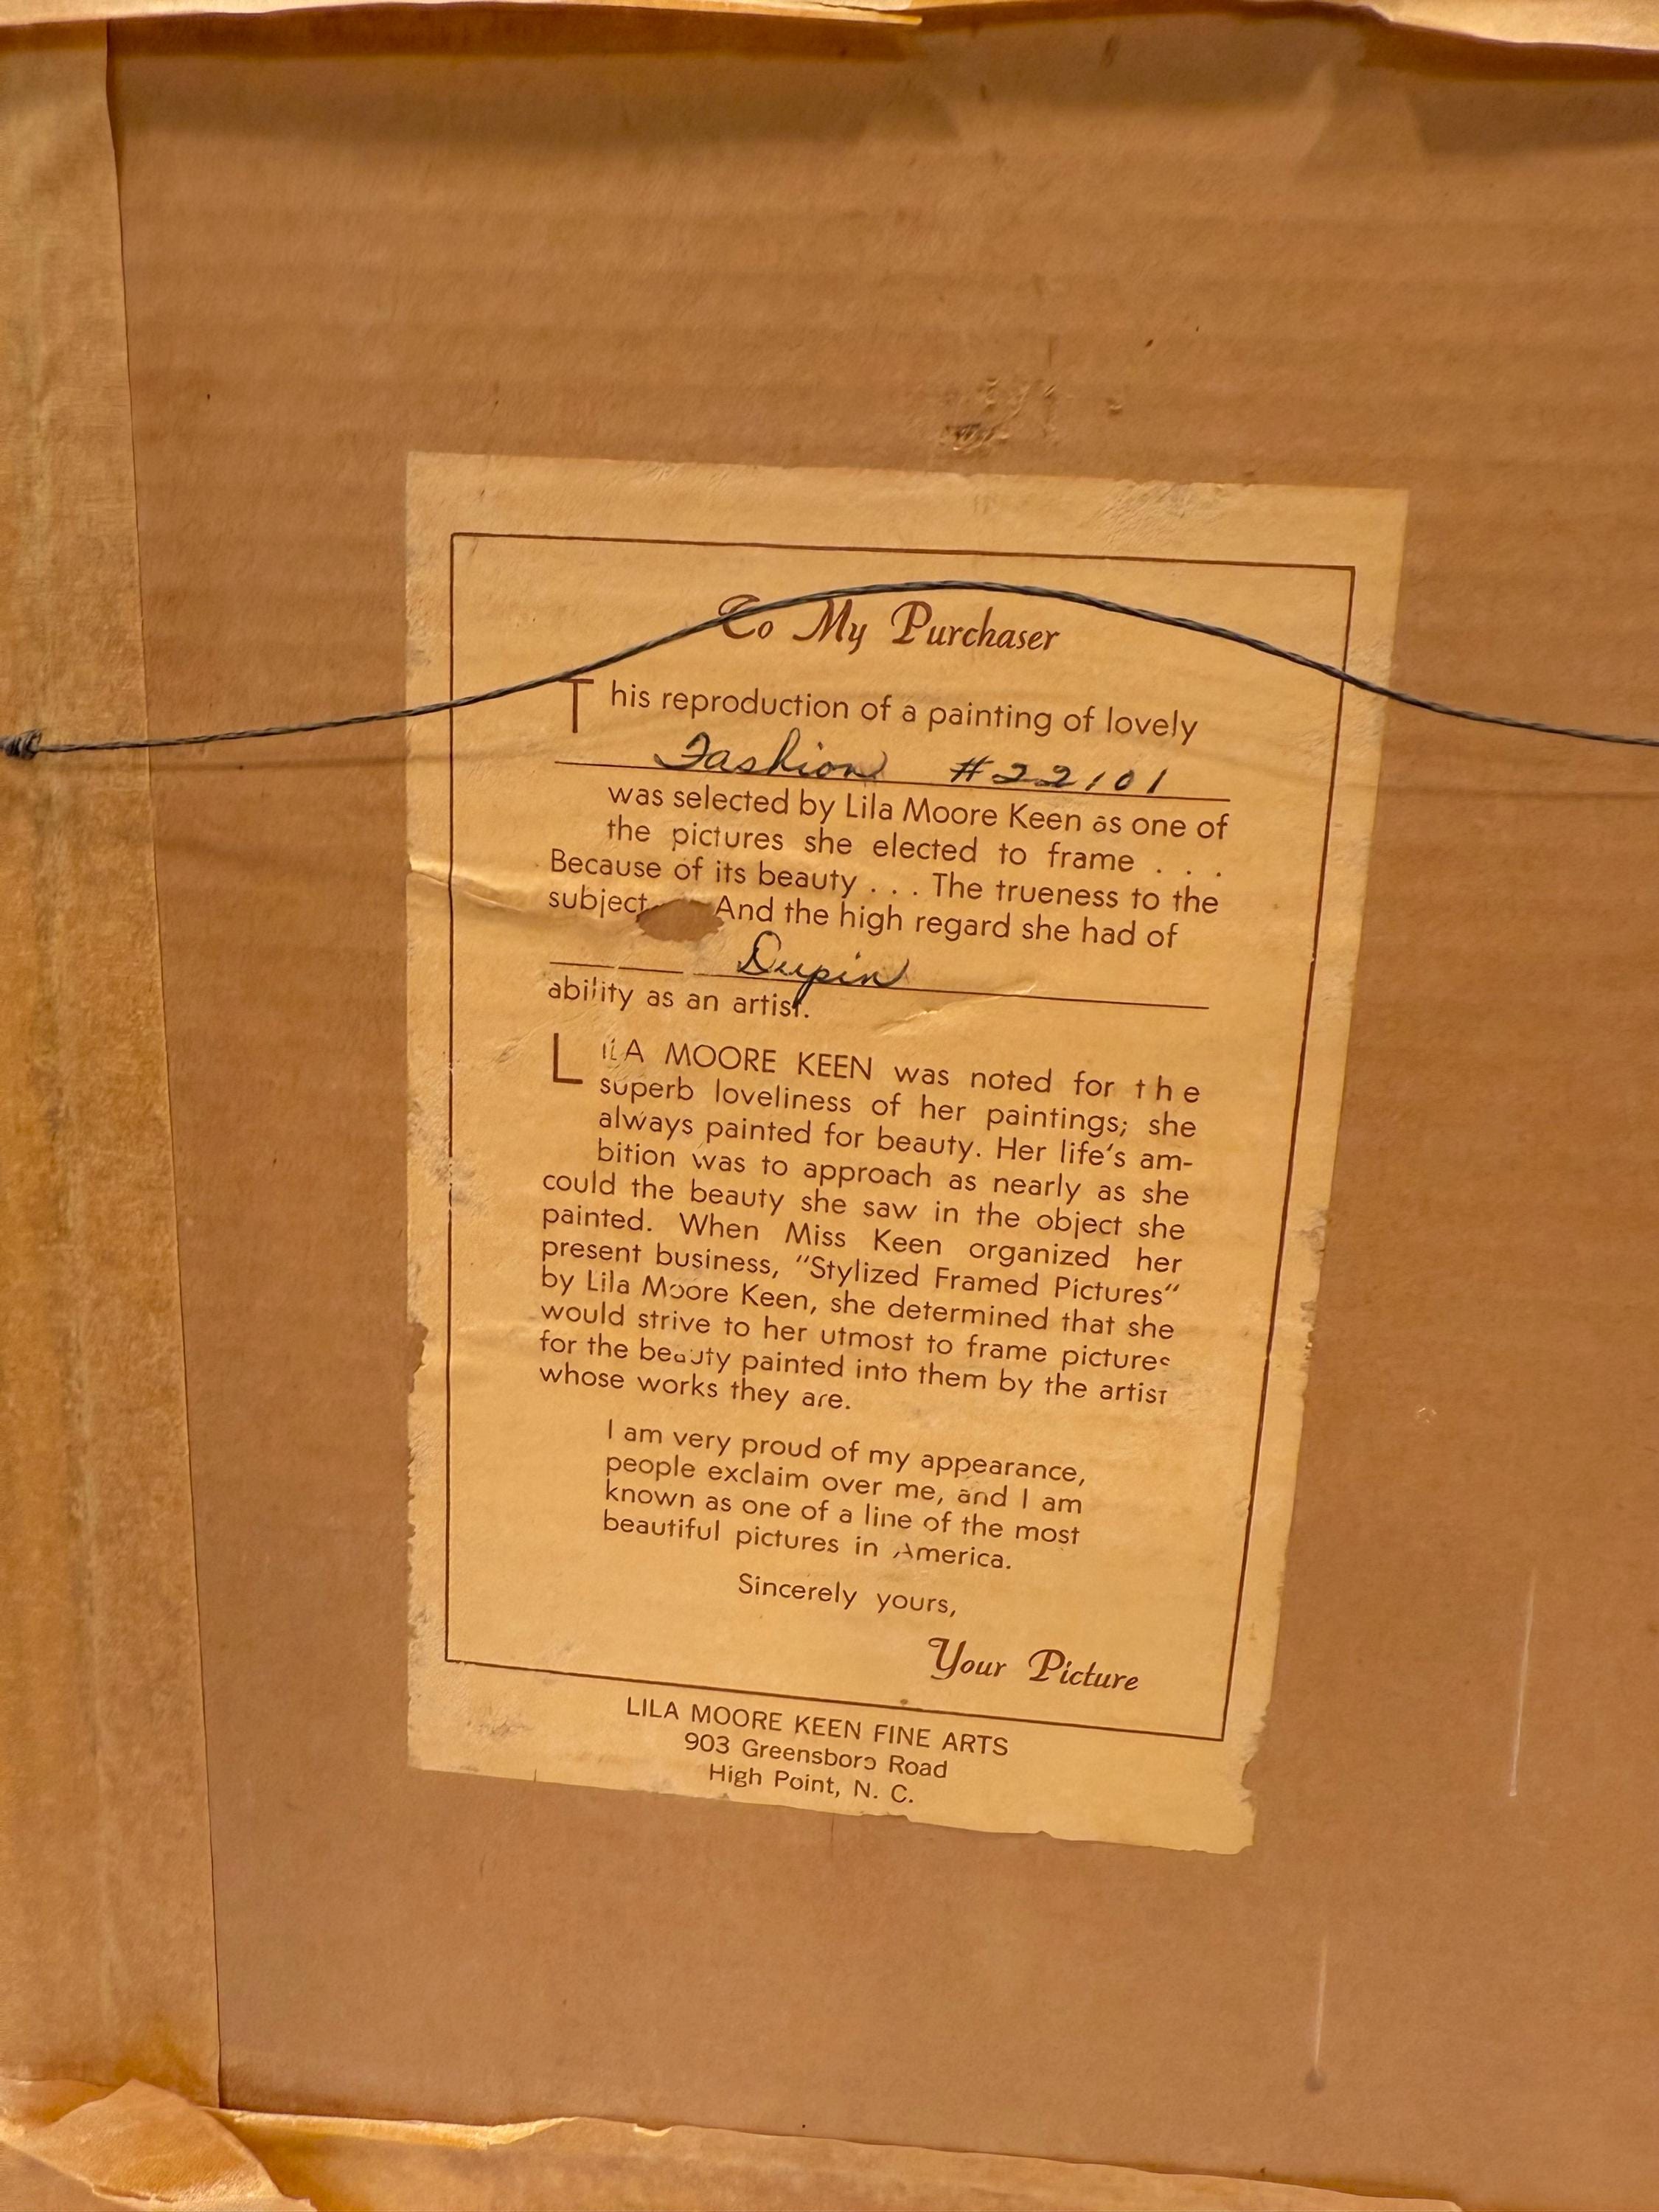 To My Purchaser
This reproduction of a painting of lovely
Fashion #22101
was selected by Lila Moore Keen as one of
the pictures she elected to frame . . .
Because of its beauty . . . The trueness to the
subject And the high regard she had of
Dupin
ability as an artist.
LILA MOORE KEEN was noted for the
superb loveliness of her paintings; she
always painted for beauty. Her life's am-
bition was to approach as nearly as she
could the beauty she saw in the object she
painted. When Miss Keen organized her
present business, "Stylized Framed Pictures"
by Lila Moore Keen, she determined that she
would strive to her utmost to frame pictures
for the beauty painted into them by the artist
whose works they are.
I am very proud of my appearance,
people exclaim over me, and I am
known as one of a line of the most
beautiful pictures in America.
Sincerely yours,
Your Picture
LILA MOORE KEEN FINE ARTS
903 Greensboro Road
High Point, N. C.